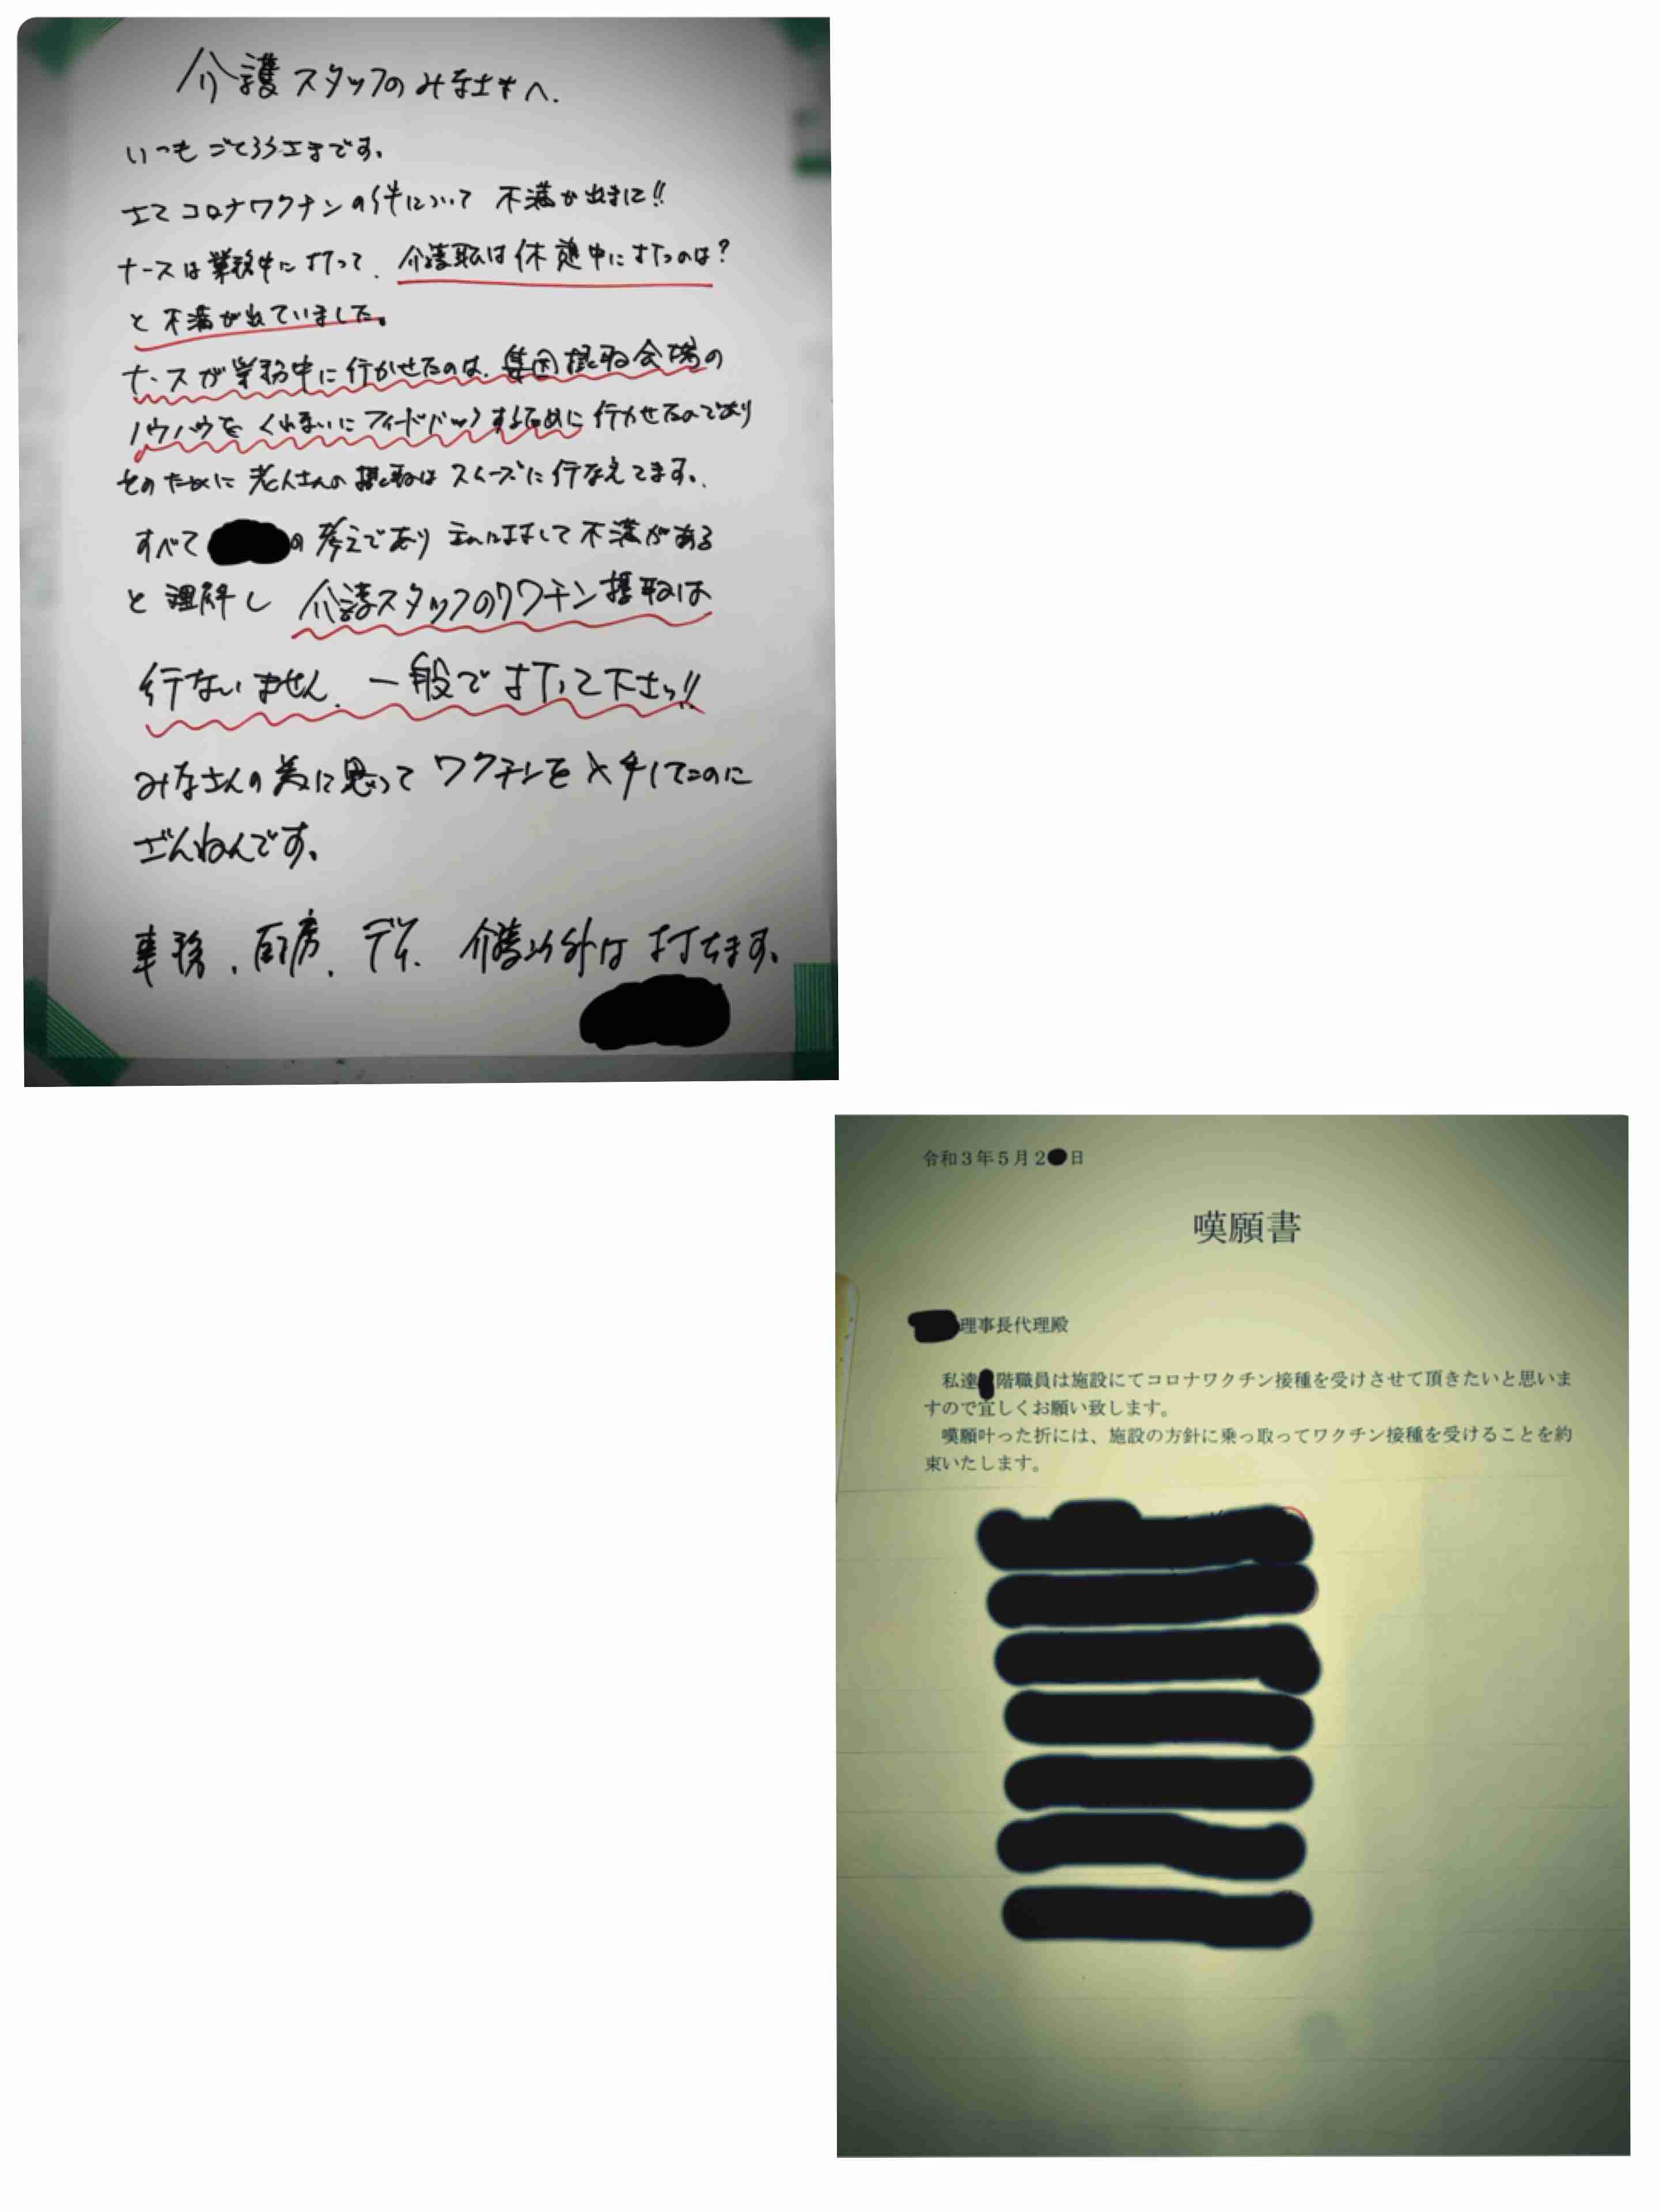 介護スタッフのみなさまへ.
いつもごくろうさまです。
さてコロナワクチンの件について 不満が出ました!!
ナースは業務中に打って、介護職は休憩中に打つのは?
と不満が出ていました。
ナースが業務中に行かせたのは、集団摂取会場の
ノウハウを くれまいにフィードバックするために行かせたのであり
そのために老人さんの摂取はスムーズに行なえてます。
すべて の考えであり に対して不満がある
と理解し 介護スタッフのワクチン摂取は
行ないません、一般で打って下さい!!
みなさんの為に思って ワクチンを入手してたのに
ざんねんです。
事務、厨房、デイ、介護以外は打ちます。
令和3年5月2 日
嘆願書
理事長代理殿
私達 階職員は施設にてコロナワクチン接種を受けさせて頂きたいと思いま
すので宜しくお願い致します。
嘆願叶った折には、施設の方針に乗っ取ってワクチン接種を受けることを約
束いたします。